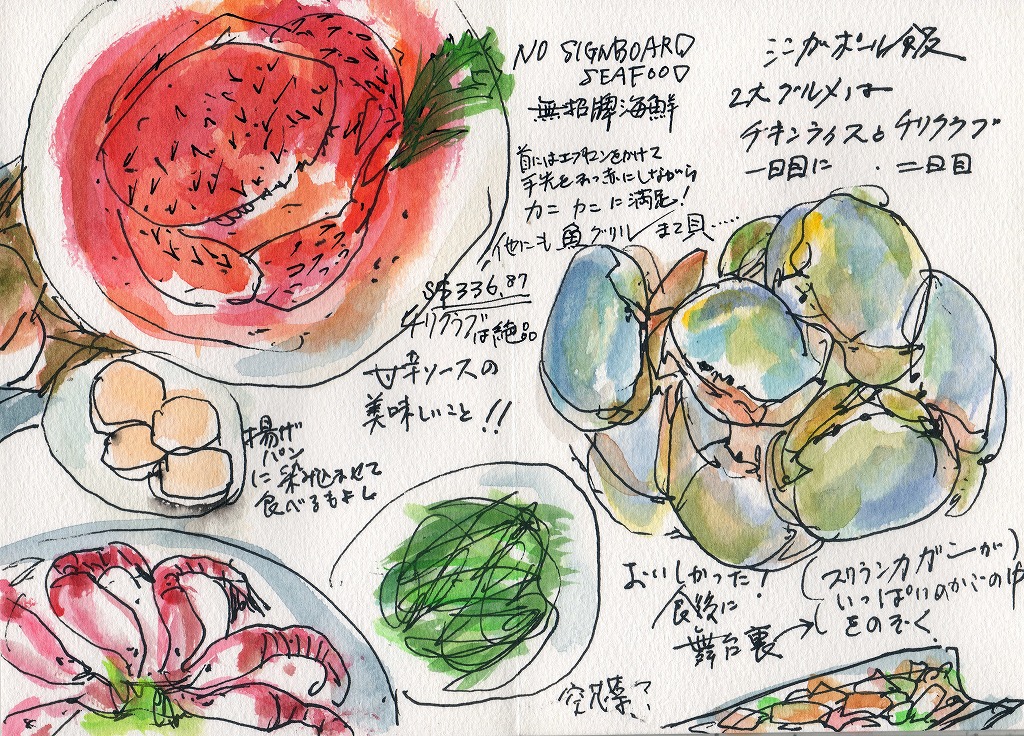 NO SIGNBOARD
SEAFOOD
無招牌海鮮
首にはエプロンをかけて
手先をまっ赤にしながら
カニ カニ に満足!
他にも 魚グリル まて貝……
S$336.87
チリクラブ
は絶品
甘辛ソースの
美味しいこと!!
シンガポール飯
2大グルメは
チキンライスとチリクラブ
一日目に ・二日目
揚げ
パン
に染み込ませて
食べるもよし
おいしかった!
食後に
舞台裏→
(スリランカガニが)
いっぱいのかごの中
をのぞく
空芯菜?